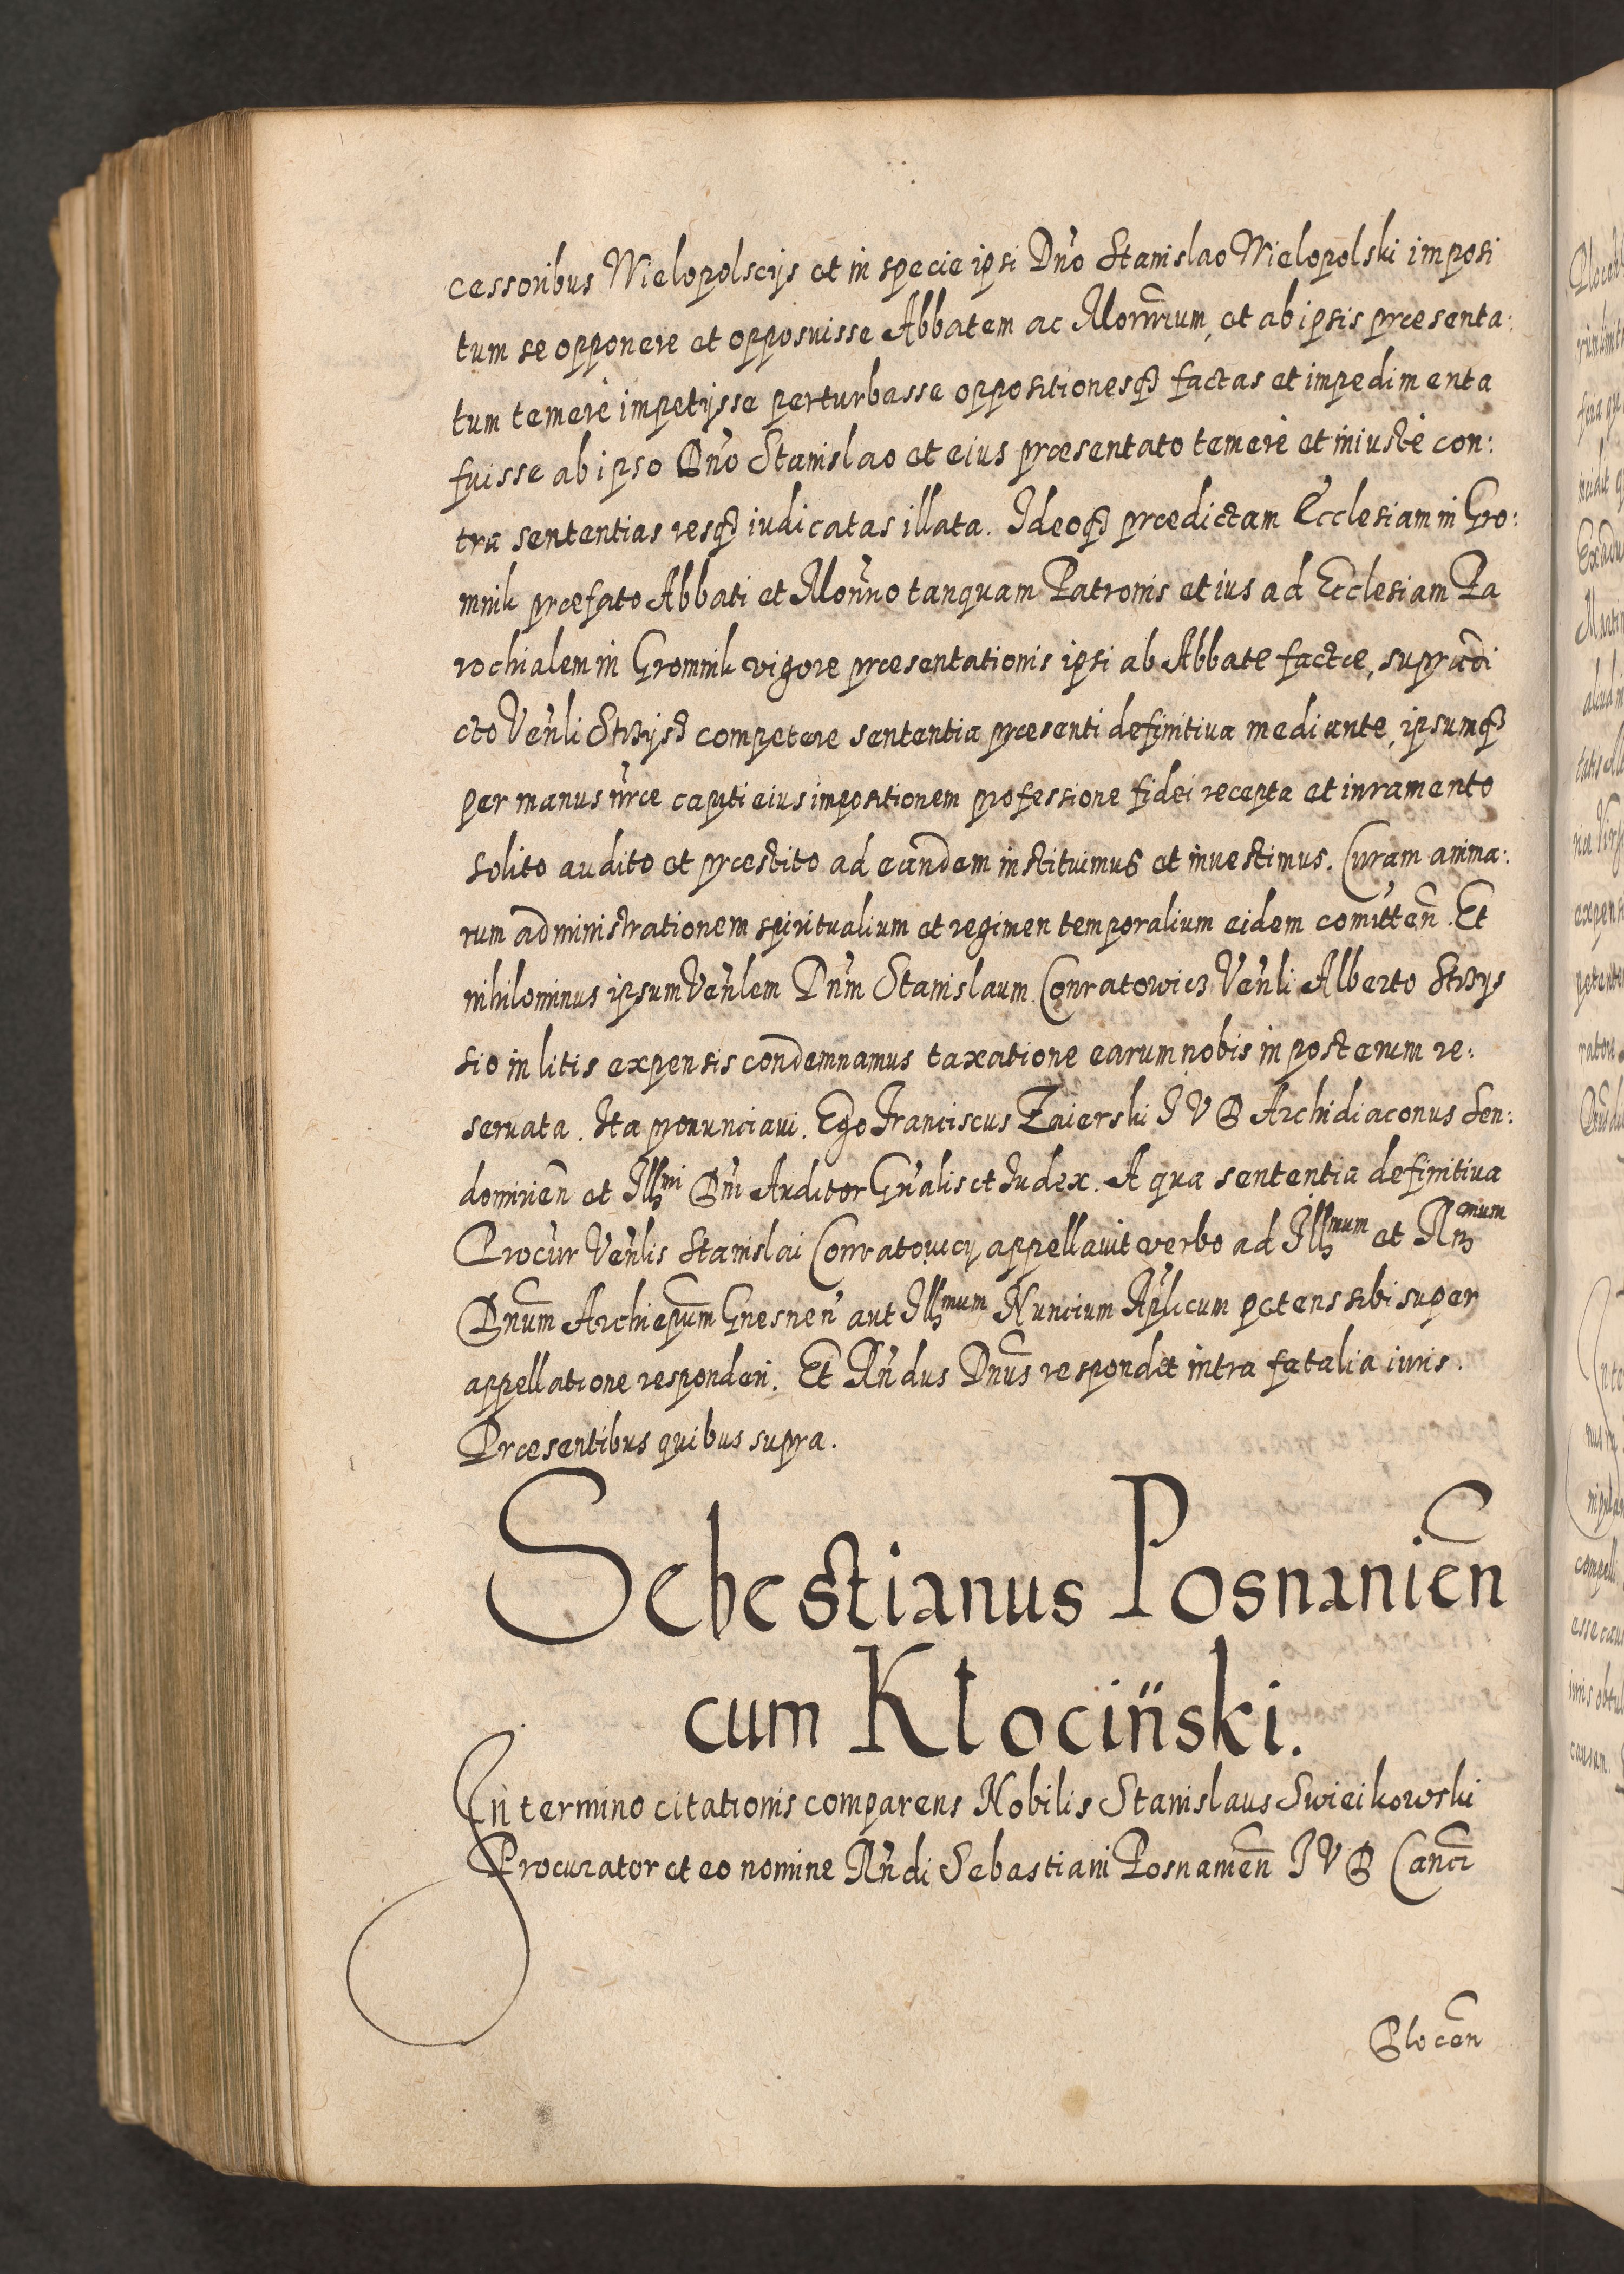 cessoribus Wielopolscÿs et in specie ipsi Dño Stanislao Wielopolski imposi
tum se opponere et opposuisse Abbatem ac Monrium, et ab ipsis præsenta:
tum temerè impetÿsse perturbasse oppositionesqȝ factas et impedimenta
fuisse ab ipso Dño Stanislao et eius præsentato temerè et iniustè con:
tra sententias resqȝ iudicatas illata. Ideoqȝ prædictam Ecclesiam in Gro:
mnik præfato Abbati et Monrio tanquam Patronis et ius ad Ecclesiam Pa
rochialem in Gromnik vigore præsentationis ipsi ab Abbate factæ, supradi
cto Veñli Strzÿsȝ competere sententia præsenti definitiua mediante, ipsumqȝ
per manus ñræ capiti eius impositionem professione fidei recepta et iuramento
solito audito et præstito ad eandem instituimus et inuestimus. Curam anima:
rum administrationem spiritualium et regimen temporalium eidem comitteñ. Et
nihilominus ipsum Veñlem Dñm Stanislaum Conratowicz Veñli Alberto Strzÿs
sio in litis expensis condemnamus taxatione earum nobis in posterum re:
seruata. Ita pronunciaui. Ego Franciscus Zaierski I V D Archidiaconus Sen:
domirieñ et Illmi Dñi Auditor Gñalis et Iudex. A qua sententia definitiua
Procur Veñlis Stanislai Conratowicy appellauit verbo ad Illmum et Rmum
Dnum Archiepum Gnesneñ aut Illmum Nuncium Aplicum petens sibi super
appellatione responderi. Et Rñdus Dnus respondit intra fatalia iuris.
Præsentibus quibus supra.
Sebestianus Posnanień
cum Klociński.
In termino citationis comparens Nobilis Stanislaus Swieikowski
Procurator et eo nomine Rñdi Sebastiani Posnanieñ I V D Canci
Plocen